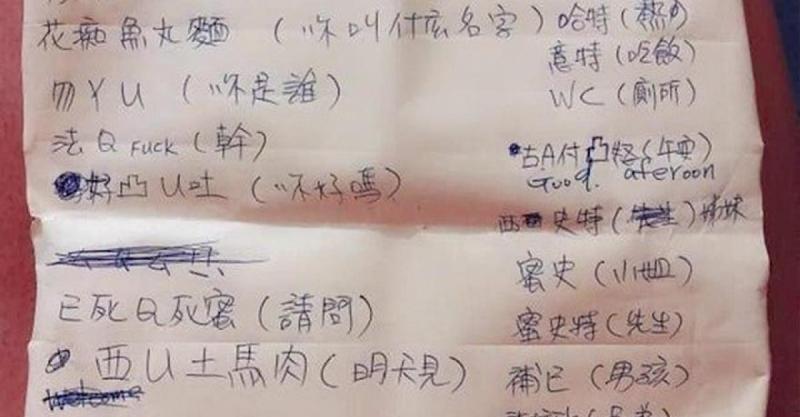 花痴魚丸麵 (妳叫什麼名字)
勿丫U (妳是誰)
法Q Fuck (幹)
好凸U吐 (妳好嗎)
已死Q死蜜 (請問)
西U土馬肉 (明天見)
Welcome
哈特 (熱的)
意特 (吃飯)
WC (廁所)
古A付凸怒 (午安)
Good. aferoon
西史特 (先生) 姊妹
蜜史 (小姐)
蜜史特 (先生)
補已 (男孩)